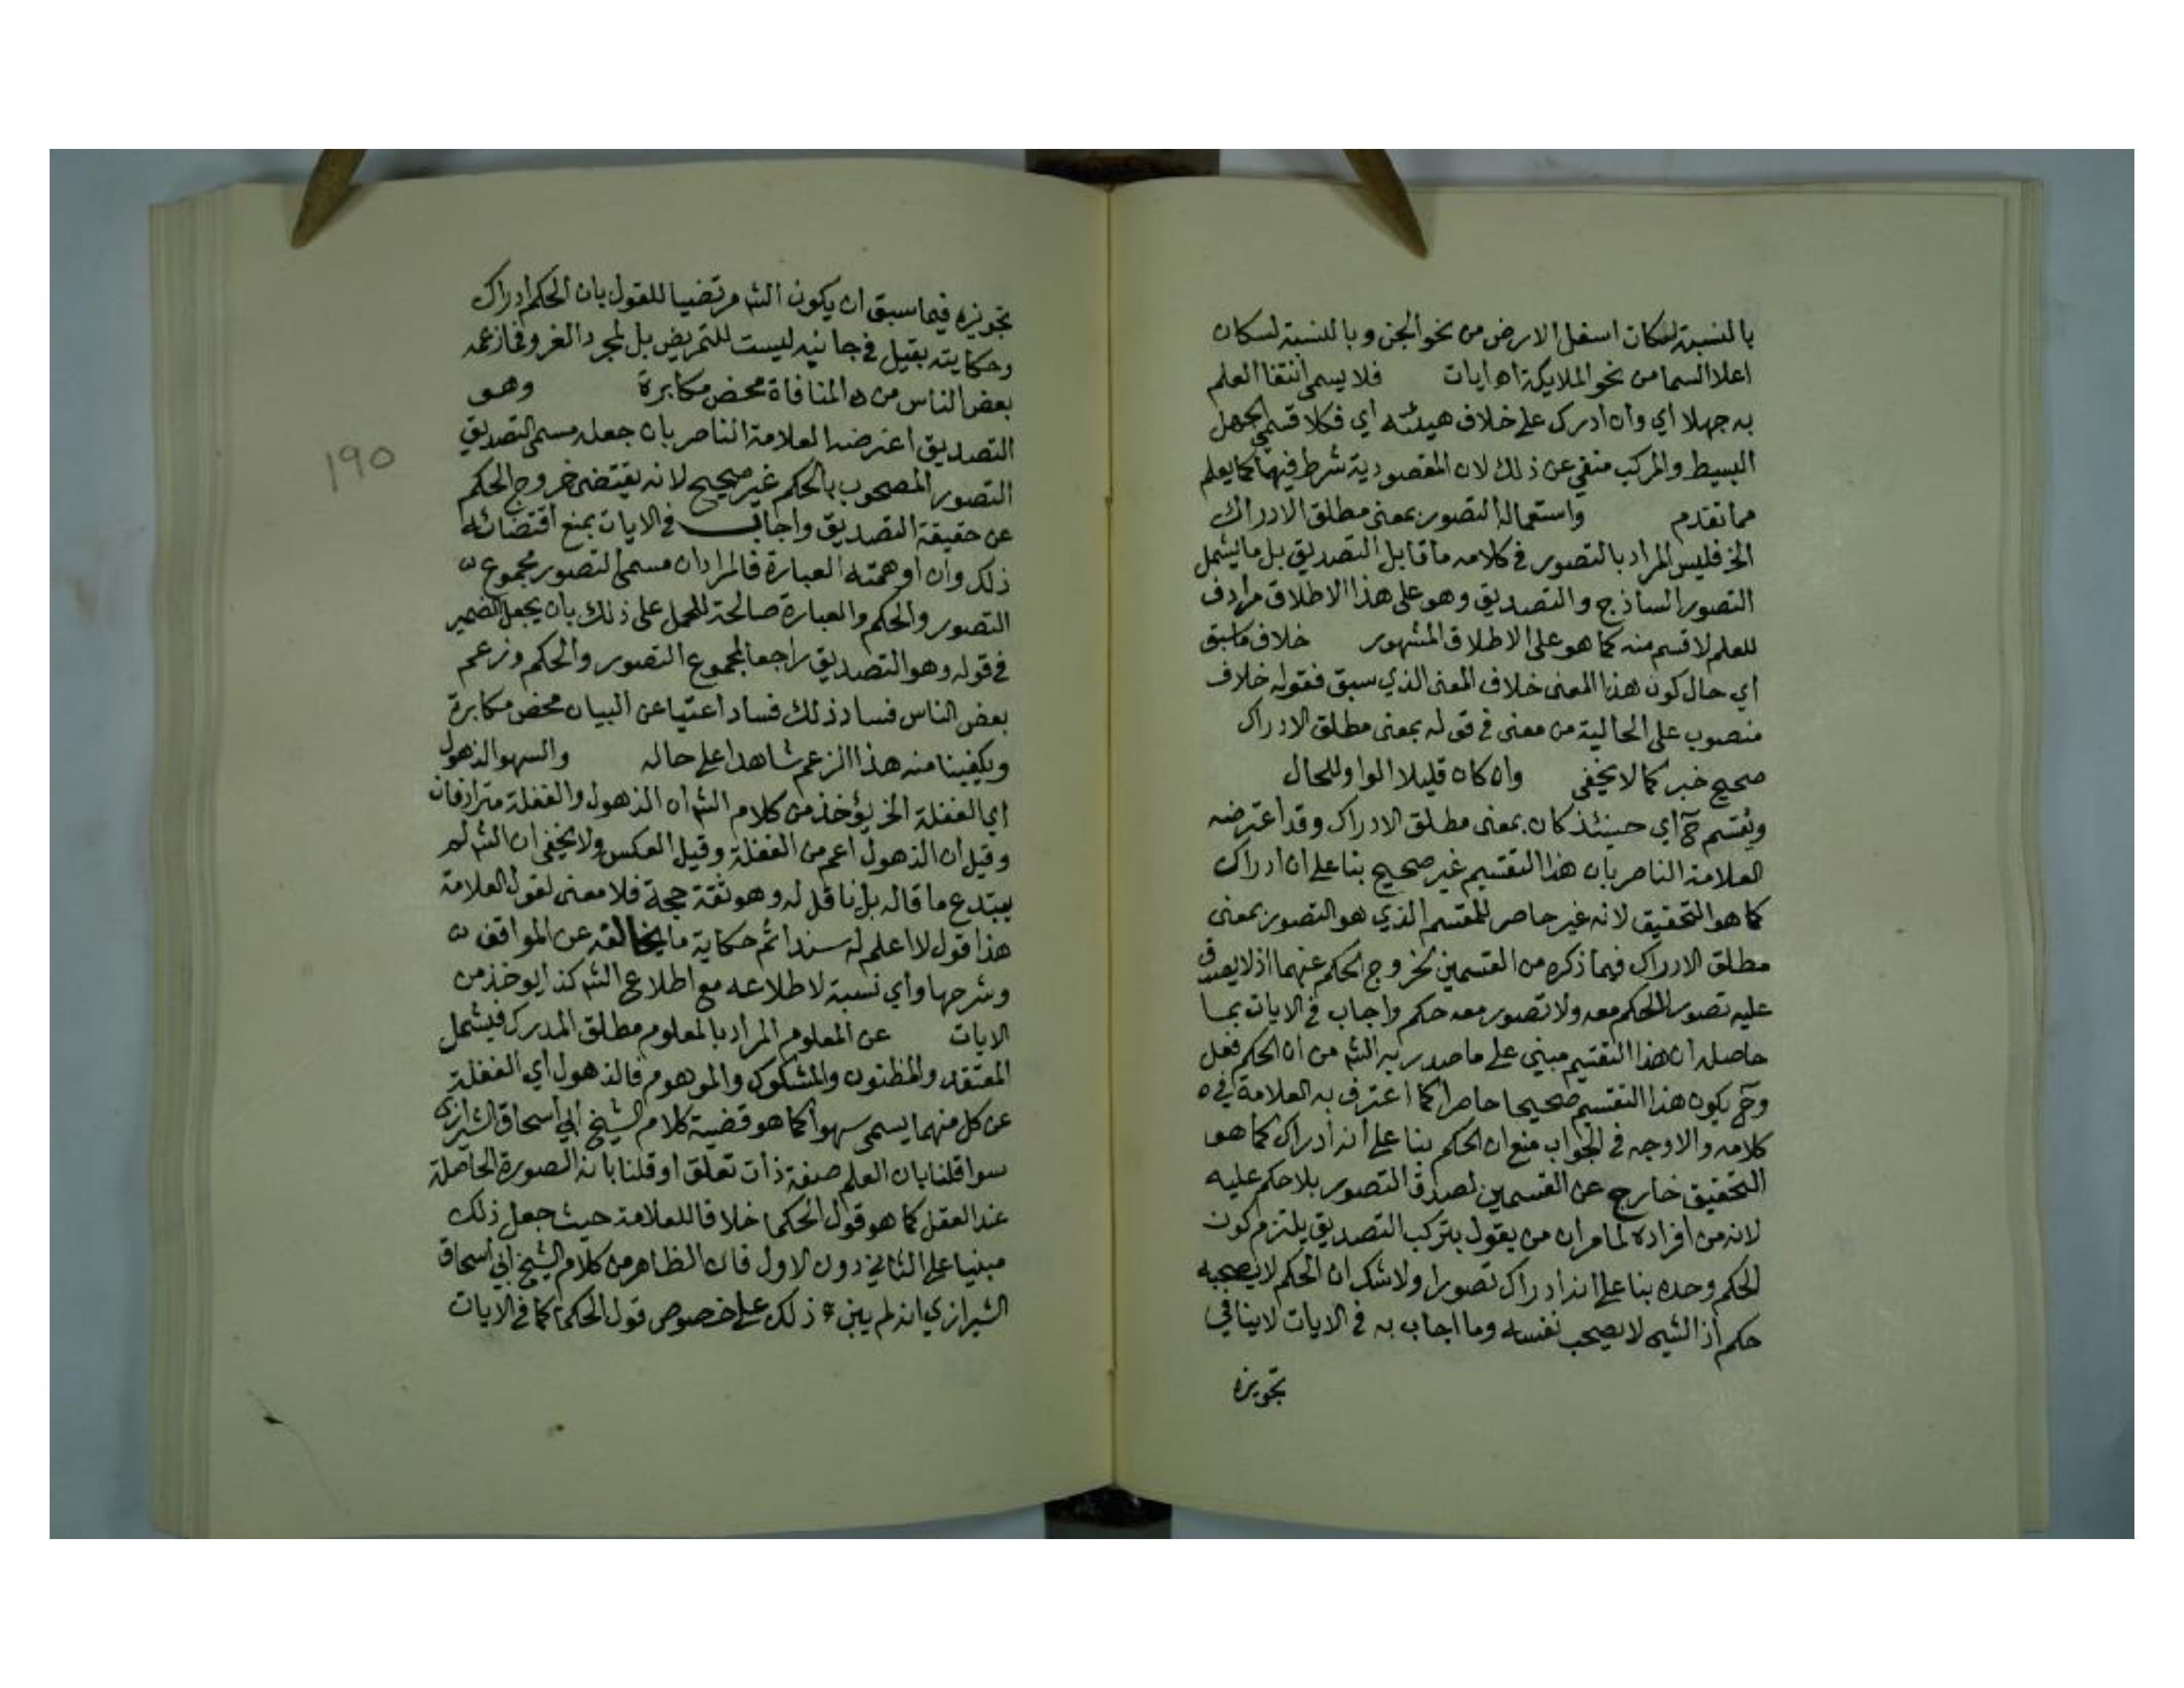 بالنسبة لسكان اسفل الارض من نحو الجن وبالنسبة لسكان
اعلا السما من نحو الملايكة اه ايات فلا يسمى انتفا العلم
به جهلا اي وان ادرك على خلاف هيئته اي فكلا قسمي الجهل
البسيط والمركب منفي عن ذلك لان المقصودية شرط فيهما كما يعلم
مما تقدم واستعماله التصور بمعنى مطلق الادراك
الخ فليس المراد بالتصور في كلامه ما قابل التصديق بل ما يشمل
التصور الساذج والتصديق وهو على هذا الاطلاق مرادف
للعلم لا قسم منه كما هو على الاطلاق المشهور خلاف ما سبق
اي حال كون هذا المعنى خلاف المعنى الذي سبق فقوله خلاف
منصوب على الحالية من معنى في قوله بمعنى مطلق الادراك
صحيح خبر كما لا يخفى وان كان قليلا الواو للحال
وبقسم ح اي حينئذ كان بمعنى مطلق الادراك وقد اعترضه
العلامة الناصر بان هذا التقسيم غير صحيح بنا على ان ادراك
كما هو التحقيق لانه غير حاصر للمقسم الذي هو التصور بمعنى
مطلق الادراك فيما ذكره من القسمين لخروج الحكم عنهما اذ لا يصدق
عليه تصور لا حكم معه ولا تصور معه حكم واجاب في الايات بما
حاصله ان هذا التقسيم مبني على ما صدر به الش من ان الحكم فعل
وح يكون هذا التقسيم صحيحا حاصرا كما اعترف به العلامة في ه
كلامه والاوجه في الجواب منع ان الحكم بنا على انه ادراك كما هو
التحقيق خارج عن القسمين لصدق التصور بلا حكم عليه
لانه من افراده لما مر ان من يقول بتركب التصديق يلتزم كون
الحكم وحده بنا على انه ادراك تصورا ولا شك ان الحكم لا يصحبه
حكم اذ الشي لا يصحب نفسه وما اجاب به في الايات لا ينافي
تجويزه
تجويزه فيما سبق ان يكون الش مرتضيا للقول بان الحكم ادراك
وحكايته بقيل في جانبه ليست للتمريض بل لمجرد العزو فما زعمه
بعض الناس من ه المنافاة محض مكابرة وهو
التصديق اعترضه العلامة الناصر بان جعله مسمى التصديق
التصور المصحوب بالحكم غير صحيح لانه يقتضي خروج الحكم
عن حقيقة التصديق واجاب في الايات بمنع اقتضائه
ذلك وان اوهمته العبارة فالمراد ان مسمى التصور مجموع
التصور والحكم والعبارة صالحة للحمل على ذلك بان يجعل الضمير
في قوله وهو التصديق راجعا لمجموع التصور والحكم وزعم
بعض الناس فساد ذلك فسادا عتيا عن البيان محض مكابرة
ويكفينا منه هذا الزعم شاهدا على حاله والسهو الذهول
اي الغفلة الخ يؤخذ من كلام الش ان الذهول والغفلة مترادفان
وقيل ان الذهول اعم من الغفلة وقيل العكس ولا يخفى ان الش لم
يبتدع ما قاله بل ناقل له وهو ثقة حجة فلا معنى لقول العلامة
هذا قول لا اعلم له سندا ثم حكاية ما يخالفه عن المواقف
وشرحها واي نسبة لاطلاعه مع اطلاع الش كذا يوخذ من
الايات عن المعلوم المراد بالمعلوم مطلق المدرك فيشمل
المعتقد والمظنون والمشكوك والموهوم فالذهول اي الغفلة
عن كل منهما يسمى سهوا كما هو قضية كلام الشيخ ابي اسحاق الشيرازي
سوا قلنا بان العلم صفة ذات تعلق او قلنا بانه الصورة الحاصلة
عند العقل كما هو قول الحكما خلافا للعلامة حيث جعل ذلك
مبنيا على الثاني دون الاول فان الظاهر من كلام الشيخ ابي اسحاق
الشيرازي انه لم يبن ذلك على خصوص قول الحكما كما في الايات
١٩٥